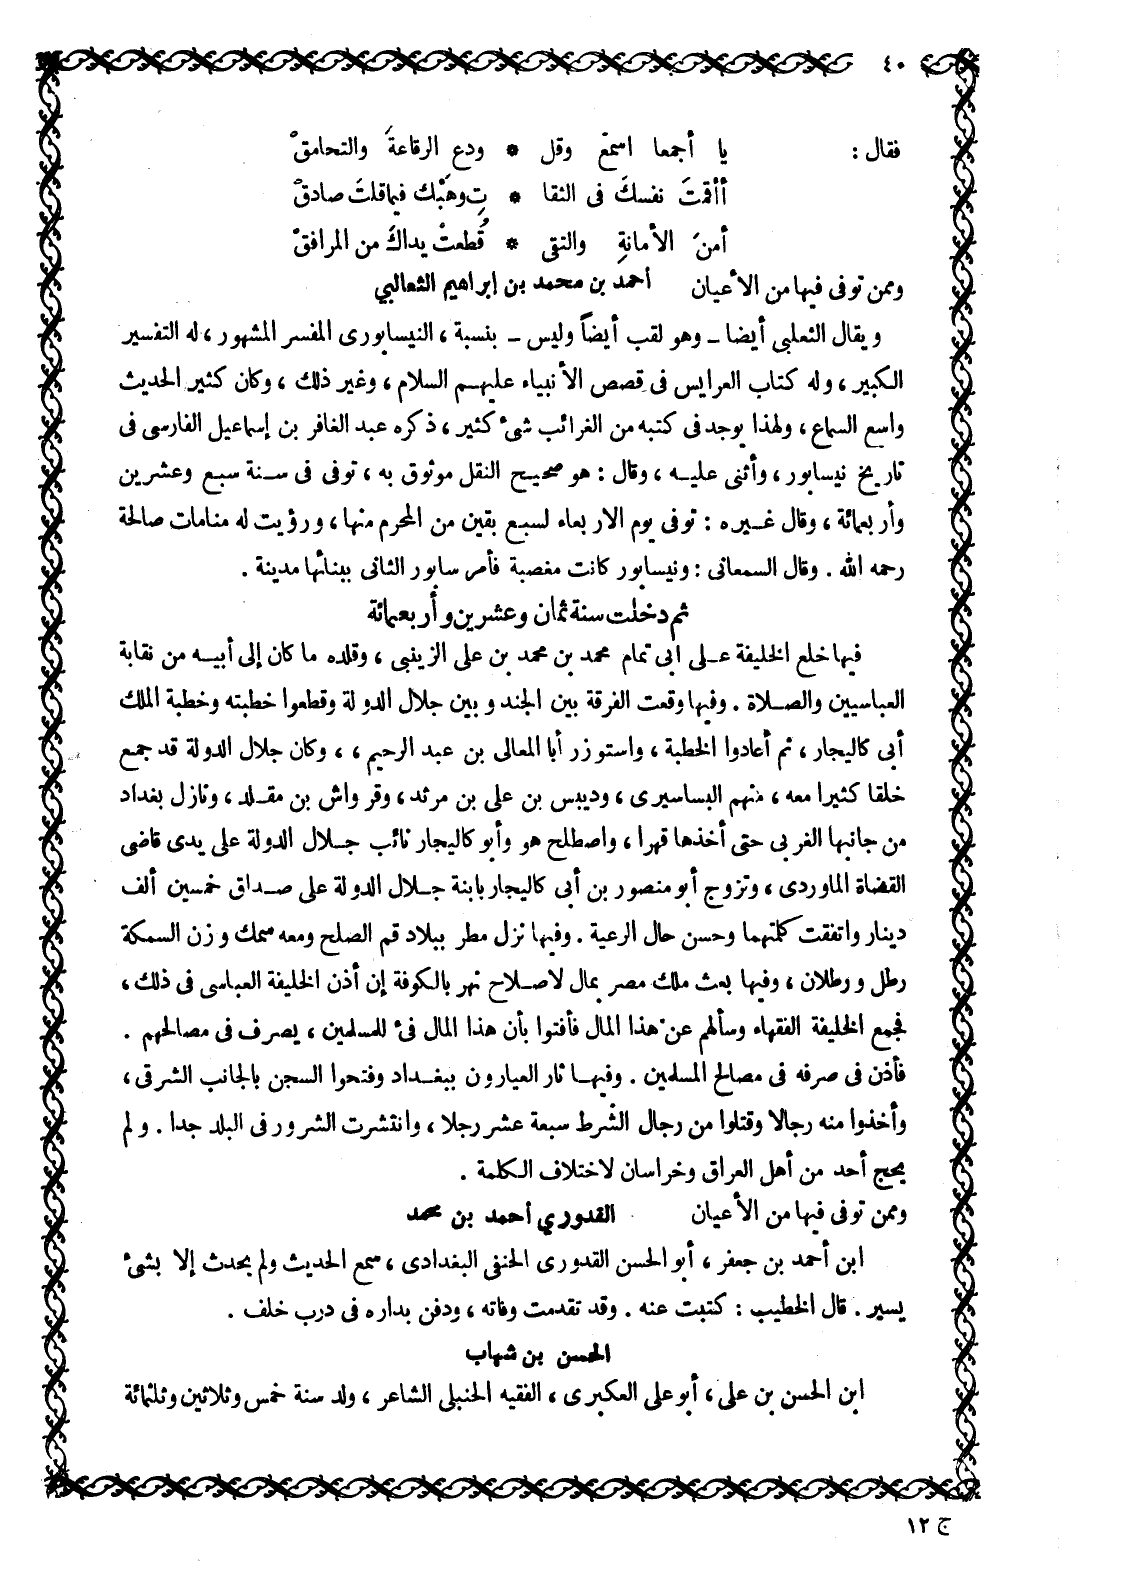 ٤٠
فقال : يا أجمعا اسمع وقل * ودع الرقاعةَ والتحامقْ
أأقمتَ نفسكَ فى الثقا * تِ وهَبْك فيما قلتَ صادقْ
أمنَ الأمانةِ والتقى * قُطعتْ يداكَ من المرافقْ
وممن توفى فيها من الأعيان أحمد بن محمد بن إبراهيم الثعالبي
ويقال الثعلبى أيضا ـ وهو لقب أيضاً وليس ـ بنسبة ، النيسابورى المفسر المشهور ، له التفسير
الكبير ، وله كتاب العرايس فى قصص الأنبياء عليهم السلام ، وغير ذلك ، وكان كثير الحديث
واسع السماع ، ولهذا يوجد فى كتبه من الغرائب شئ كثير ، ذكره عبد الغافر بن إسماعيل الفارسى فى
تاريخ نيسابور ، وأثنى عليه ، وقال : هو صحيح النقل موثوق به ، توفى فى سنة سبع وعشرين
وأربعمائة ، وقال غيره : توفى يوم الاربعاء لسبع بقين من المحرم منها ، ورؤيت له منامات صالحة
رحمه الله . وقال السمعانى : ونيسابور كانت مغصبة فأمر سابور الثانى ببنائها مدينة .
ثم دخلت سنة ثمان وعشرين وأربعمائة
فيها خلع الخليفة على ابى تمام محمد بن محمد بن على الزينبى ، وقلده ما كان إلى أبيه من نقابة
العباسيين والصلاة . وفيها وقعت الفرقة بين الجند وبين جلال الدولة وقطعوا خطبته وخطبة الملك
أبى كاليجار ، ثم أعادوا الخطبة ، واستوزر أبا المعالى بن عبد الرحيم ، ، وكان جلال الدولة قد جمع
خلقا كثيرا معه ، منهم البساسيرى ، ودبيس بن على بن مرثد ، وقرواش بن مقلد ، ونازل بغداد
من جانبها الغربى حتى أخذها قهرا ، واصطلح هو وأبو كاليجار نائب جلال الدولة على يدى قاضى
القضاة الماوردى ، وتزوج أبو منصور بن أبى كاليجار بابنة جلال الدولة على صداق خمسين ألف
دينار واتفقت كلمتهما وحسن حال الرعية . وفيها نزل مطر ببلاد قم الصلح ومعه سمك وزن السمكة
رطل ورطلان ، وفيها بعث ملك مصر بمال لاصلاح نهر بالكوفة إن أذن الخليفة العباسى فى ذلك ،
فجمع الخليفة الفقهاء وسألهم عن هذا المال فأفتوا بأن هذا المال فئ للمسلمين ، يصرف فى مصالحهم .
فأذن فى صرفه فى مصالح المسلمين . وفيها ثار العيارون ببغداد وفتحوا السجن بالجانب الشرقى ،
وأخذوا منه رجالا وقتلوا من رجال الشرط سبعة عشر رجلا ، وانتشرت الشرور فى البلد جدا . ولم
يحج أحد من أهل العراق وخراسان لاختلاف الكلمة .
وممن توفى فيها من الأعيان القدوري أحمد بن محمد
ابن أحمد بن جعفر ، أبو الحسن القدورى الحنفى البغدادى ، سمع الحديث ولم يحدث إلا بشئ
يسير . قال الخطيب : كتبت عنه . وقد تقدمت وفاته ، ودفن بداره فى درب خلف .
الحسن بن شهاب
ابن الحسن بن على ، أبو على العكبرى ، الفقيه الحنبلى الشاعر ، ولد سنة خمس وثلاثين وثلثمائة
ج ١٢